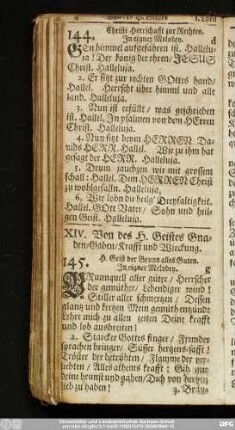 144.
Christi Herrschafft zur Rechten.
In eigner Melodey.
GEn himmel aufgefahren ist. Hallelu-
ja! Der könig der ehren/ JESUS
Christ. Halleluja.
2. Er sitzt zur rechten GOttes hand/
Hallel. Herrscht über himml und alle
land. Halleluja.
3. Nun ist erfüllt/ was geschrieben
ist. Hallel. In psalmen von dem HErrn
Christ. Halleluja.
4. Nun sitzt beym HERREN Da-
vids HERR. Hallel. Wie zu ihm hat
gesagt der HERR. Halleluja.
5. Drum jauchzen wir mit grossem
schall: Hallel. Dem HERREN Christ
zu wohlgefalln. Halleluja.
6. Wir lobn die heilg' Dreyfaltigkeit.
Hallel. GOtt Vater/ Sohn und heil-
gen Geist. Halleluja.
XIV. Von des H. Geistes Gna-
den/Gaben/Krafft und Würckung.
145.
H. Geist der Brunn alles Guten.
In eigner Melodey.
BRunnquell aller güter/ Herrscher
der gemüther/ Lebendiger wind!
Stiller aller schmertzen/ Dessen
glantz und kertzen Mein gemüth entzündt:
Lehre mich zu allen zeiten Deine krafft
und lob ausbreiten!
2. Starcker Gottes finger/ Fremder
sprachen bringer/ Süsser hertzens-safft!
Tröster der betrübten/ Flamme der ver-
liebten/ Alles athems krafft: Gib mir
deine brunst und gaben/ Dich von hertzen
lieb zu haben!